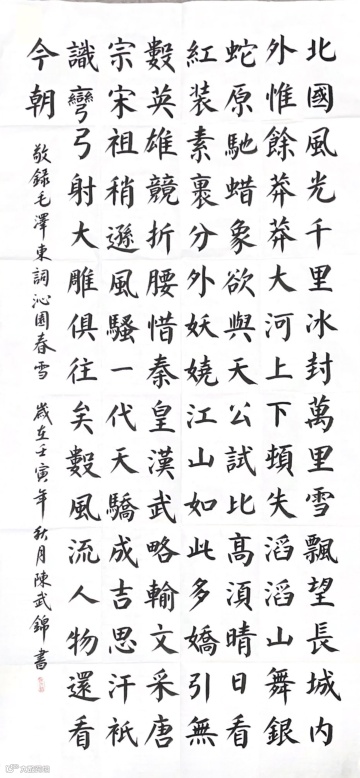 北國風光千里冰封萬里雪飄望長城內
外惟餘莽莽大河上下頓失滔滔山舞銀
蛇原馳蜡象欲與天公試比高須晴日看
紅装素裹分外妖嬈江山如此多嬌引無
數英雄競折腰惜秦皇漢武略輸文采唐
宗宋祖稍遜風騷一代天驕成吉思汗衹
識彎弓射大雕俱往矣數風流人物還看
今朝
敬錄毛澤東詞沁園春雪 歲在壬寅年秋月陳武錦書